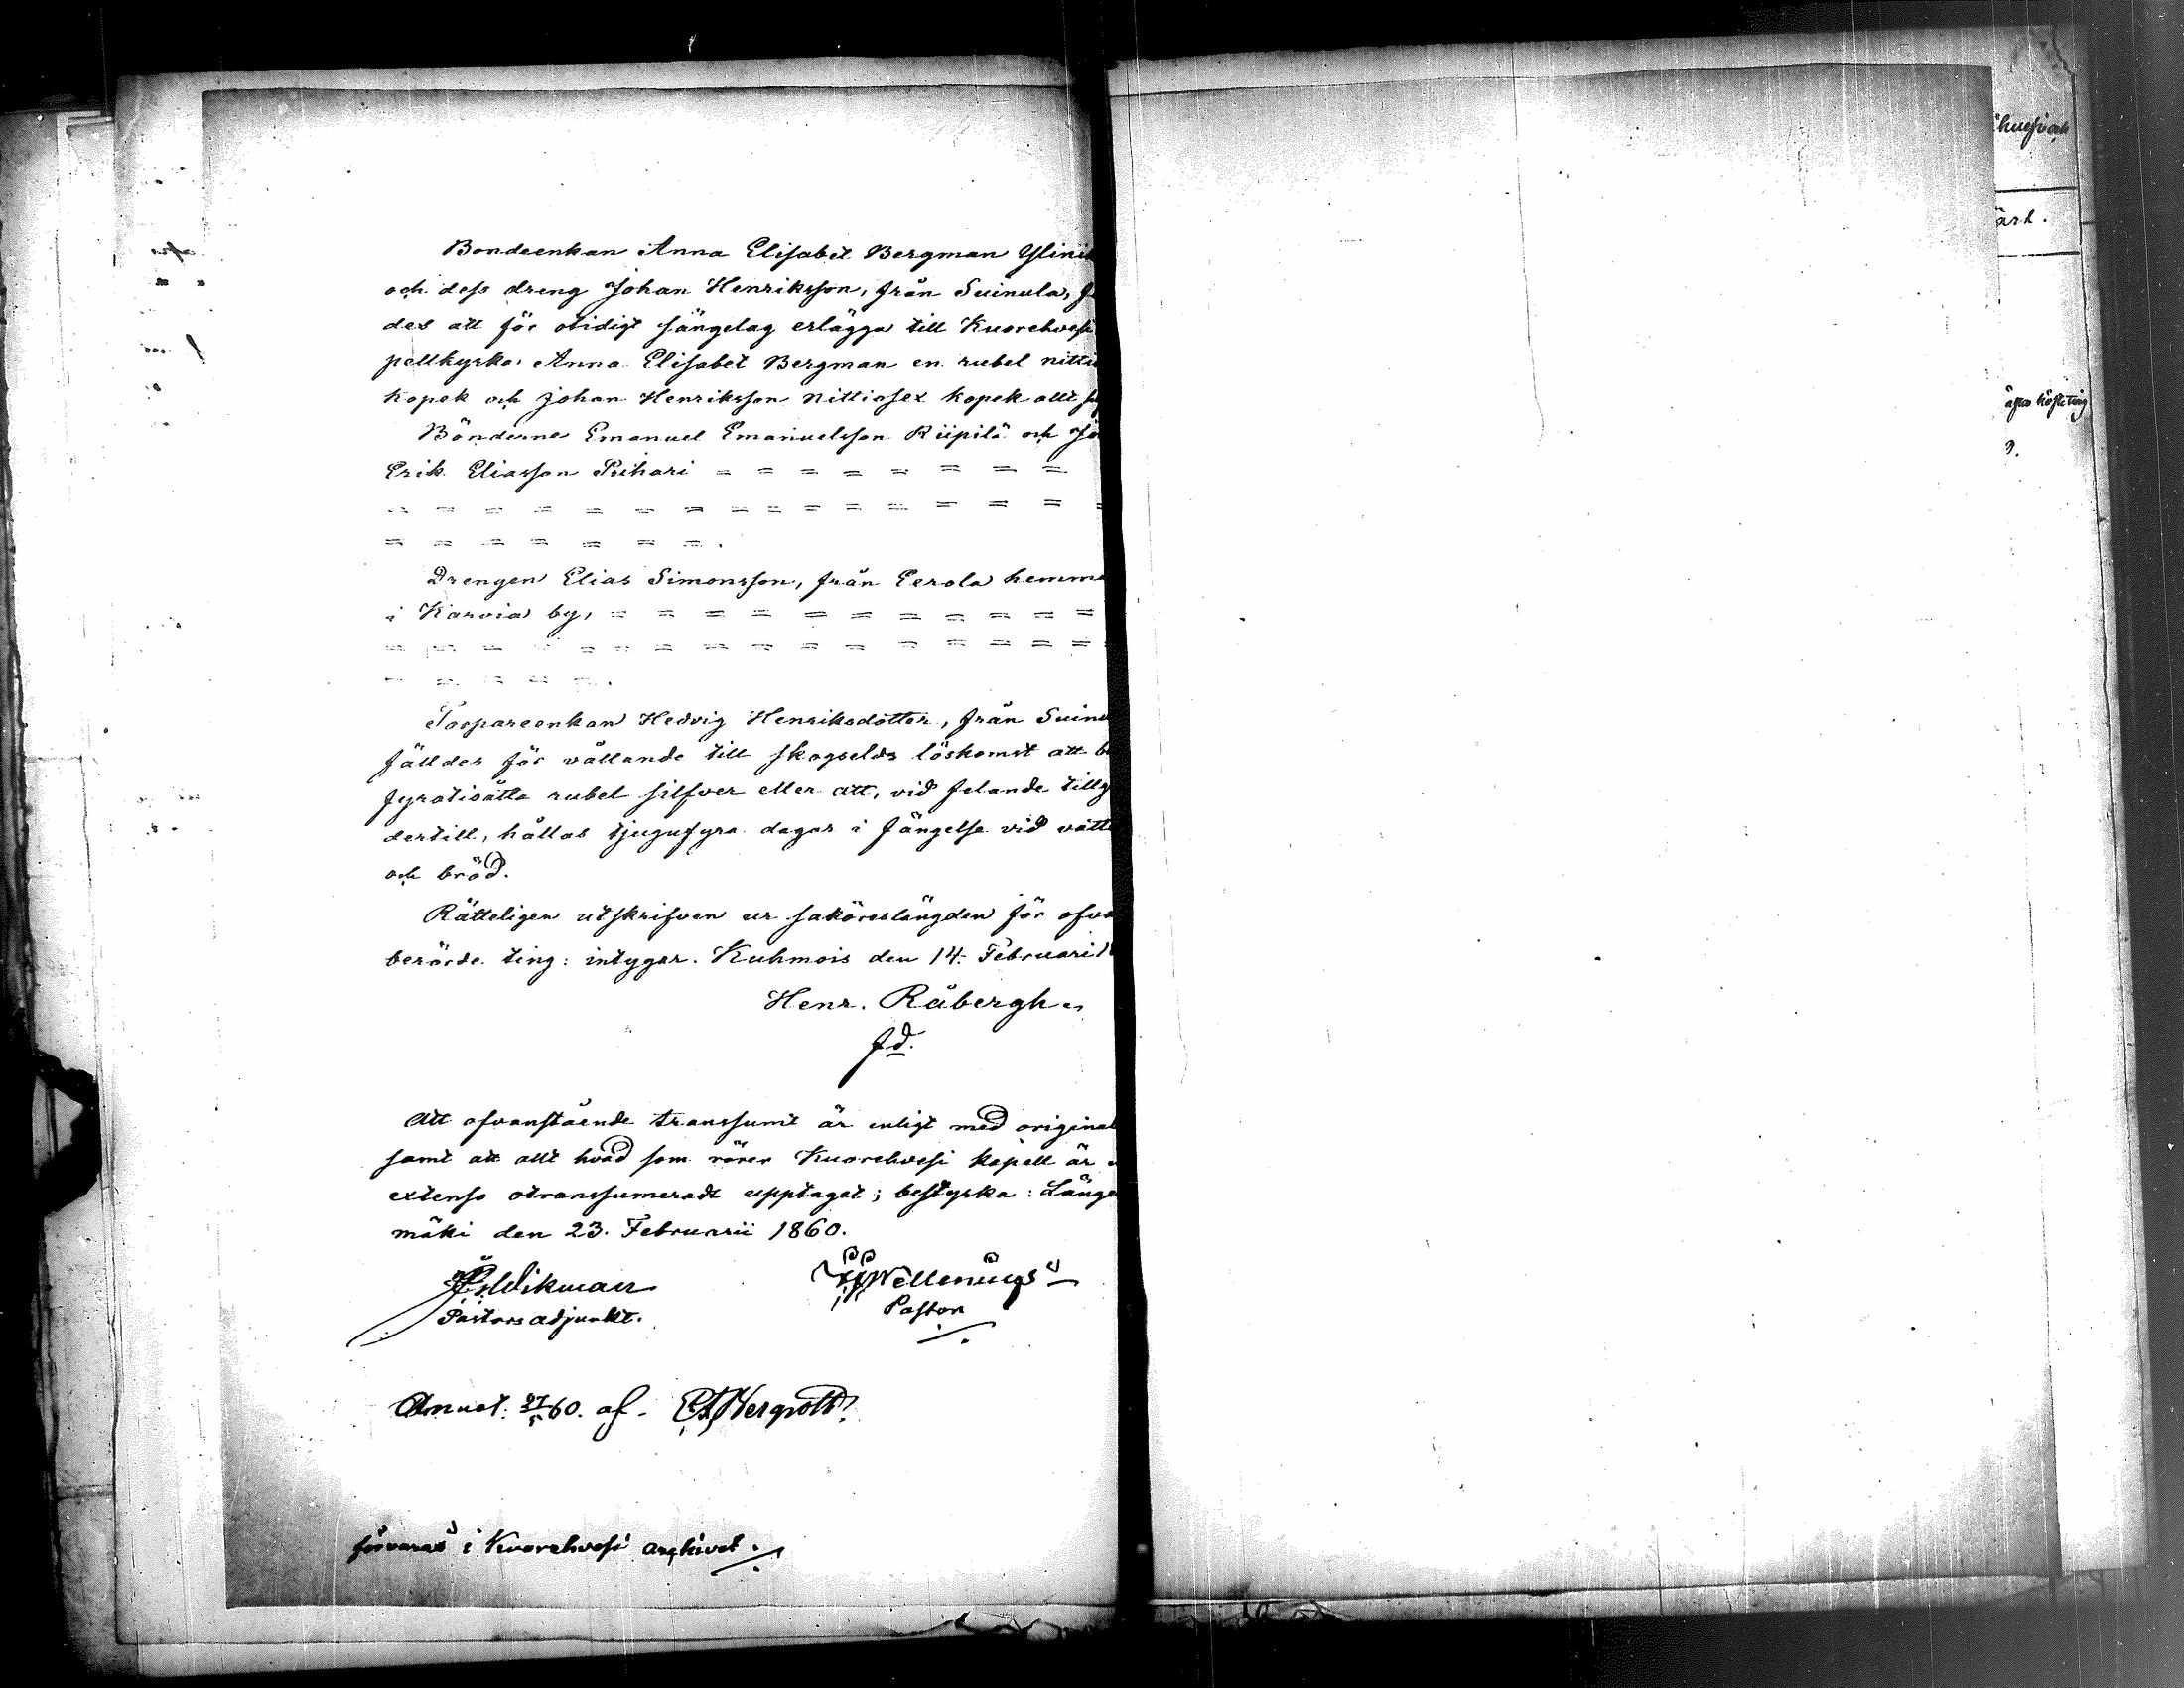 Bondeenkan Anna Elisabet Bergman Ylini
och dess dreng Johan Henriksson, från Suinula, f
des att för otidigt sängelag erlägga till Kuorehvesi
pellkyrka: Anna Elisabet Bergman en rubel nitti
kopek och Johan Henriksson nittiosex kopek allt
Bönderne Emanuel Emanuelsson Riipilä och Jo
Erik Eliasson Prihari = = = = = = = =
= = = = = = = = = = = = = = = =
= = = = = = = .
Drengen Elias Simonsson, från Eerola hemma
i Karvia by, = = = = = = = = = = =
= = = = = = = = = = = = = = = =
= = = = = .
Torpareenkan Hedvig Henriksdotter, från Suinu
fälldes för vållande till skogselds löskomst att b
fyratioåtta rubel silfver eller att, vid felande tillg
dertill, hållas tjugufyra dagar i fängelse vid vatt
och bröd.
Rätteligen utskrifven ur saköreslängden för ofva
berörde ting: intygar. Kuhmois den 14. Februari 1
Henr. Råbergh
Att ofvanstående transsumt är enligt med original
samt att allt hvad som rörer Kuorehvesi kapell är
extenso otranssumeradt upptaget; bestyrka: Länge
mäki den 23. Februarii 1860.
Wikman Wellenius
Pastors adjunkt. Pastor
Anuot. 27/5 60. af. Bergroth
förvaras i Kuorehvesi archivet.
ärt.